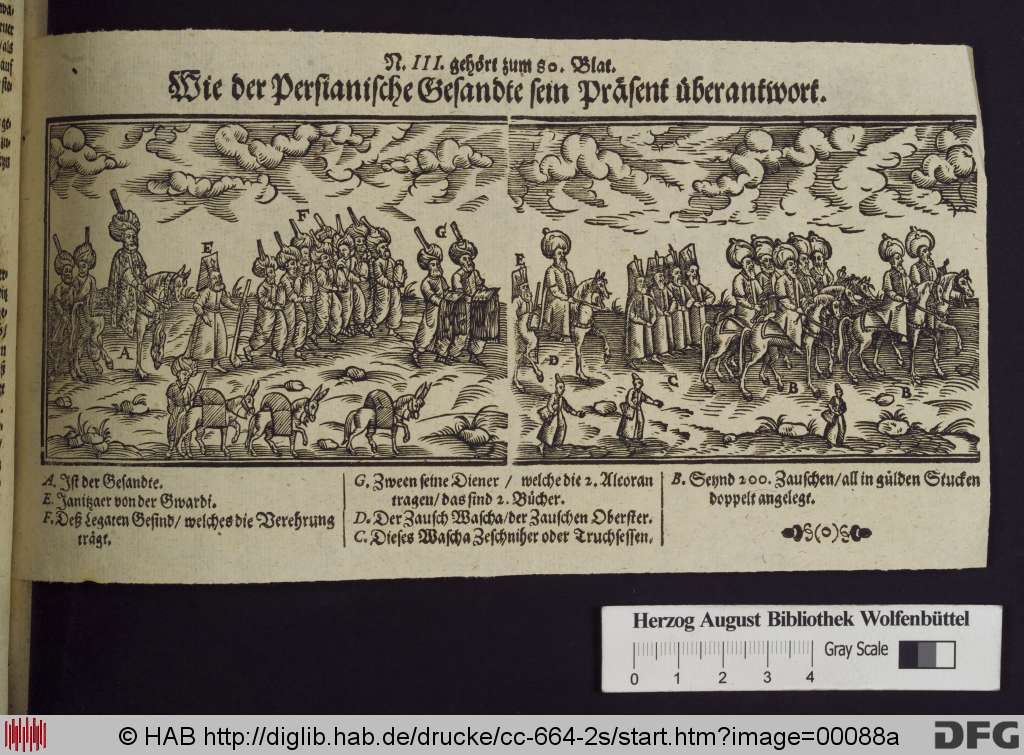 N. III. gehört zum 80. Blat.
Wie der Persianische Gesandte sein Präsent überantwort.
F
G
E
E
A
D
C
B
B
A. Ist der Gesandte.
E. Janitzaer von der Gwardi.
F. Deß Legaten Gesind / welches die Verehrung
trägt.
G. Zween seine Diener / welche die 2. Alcoran
tragen / das sind 2. Bücher.
D. Der Zausch Wascha / der Zauschen Oberster.
C. Dieses Wascha Zeschniher oder Truchsessen.
B. Seynd 200. Zauschen / all in gülden Stucken
doppelt angelegt.
Herzog August Bibliothek Wolfenbüttel
Gray Scale
0 1 2 3 4
© HAB http://diglib.hab.de/drucke/cc-664-2s/start.htm?image=00088a
DFG